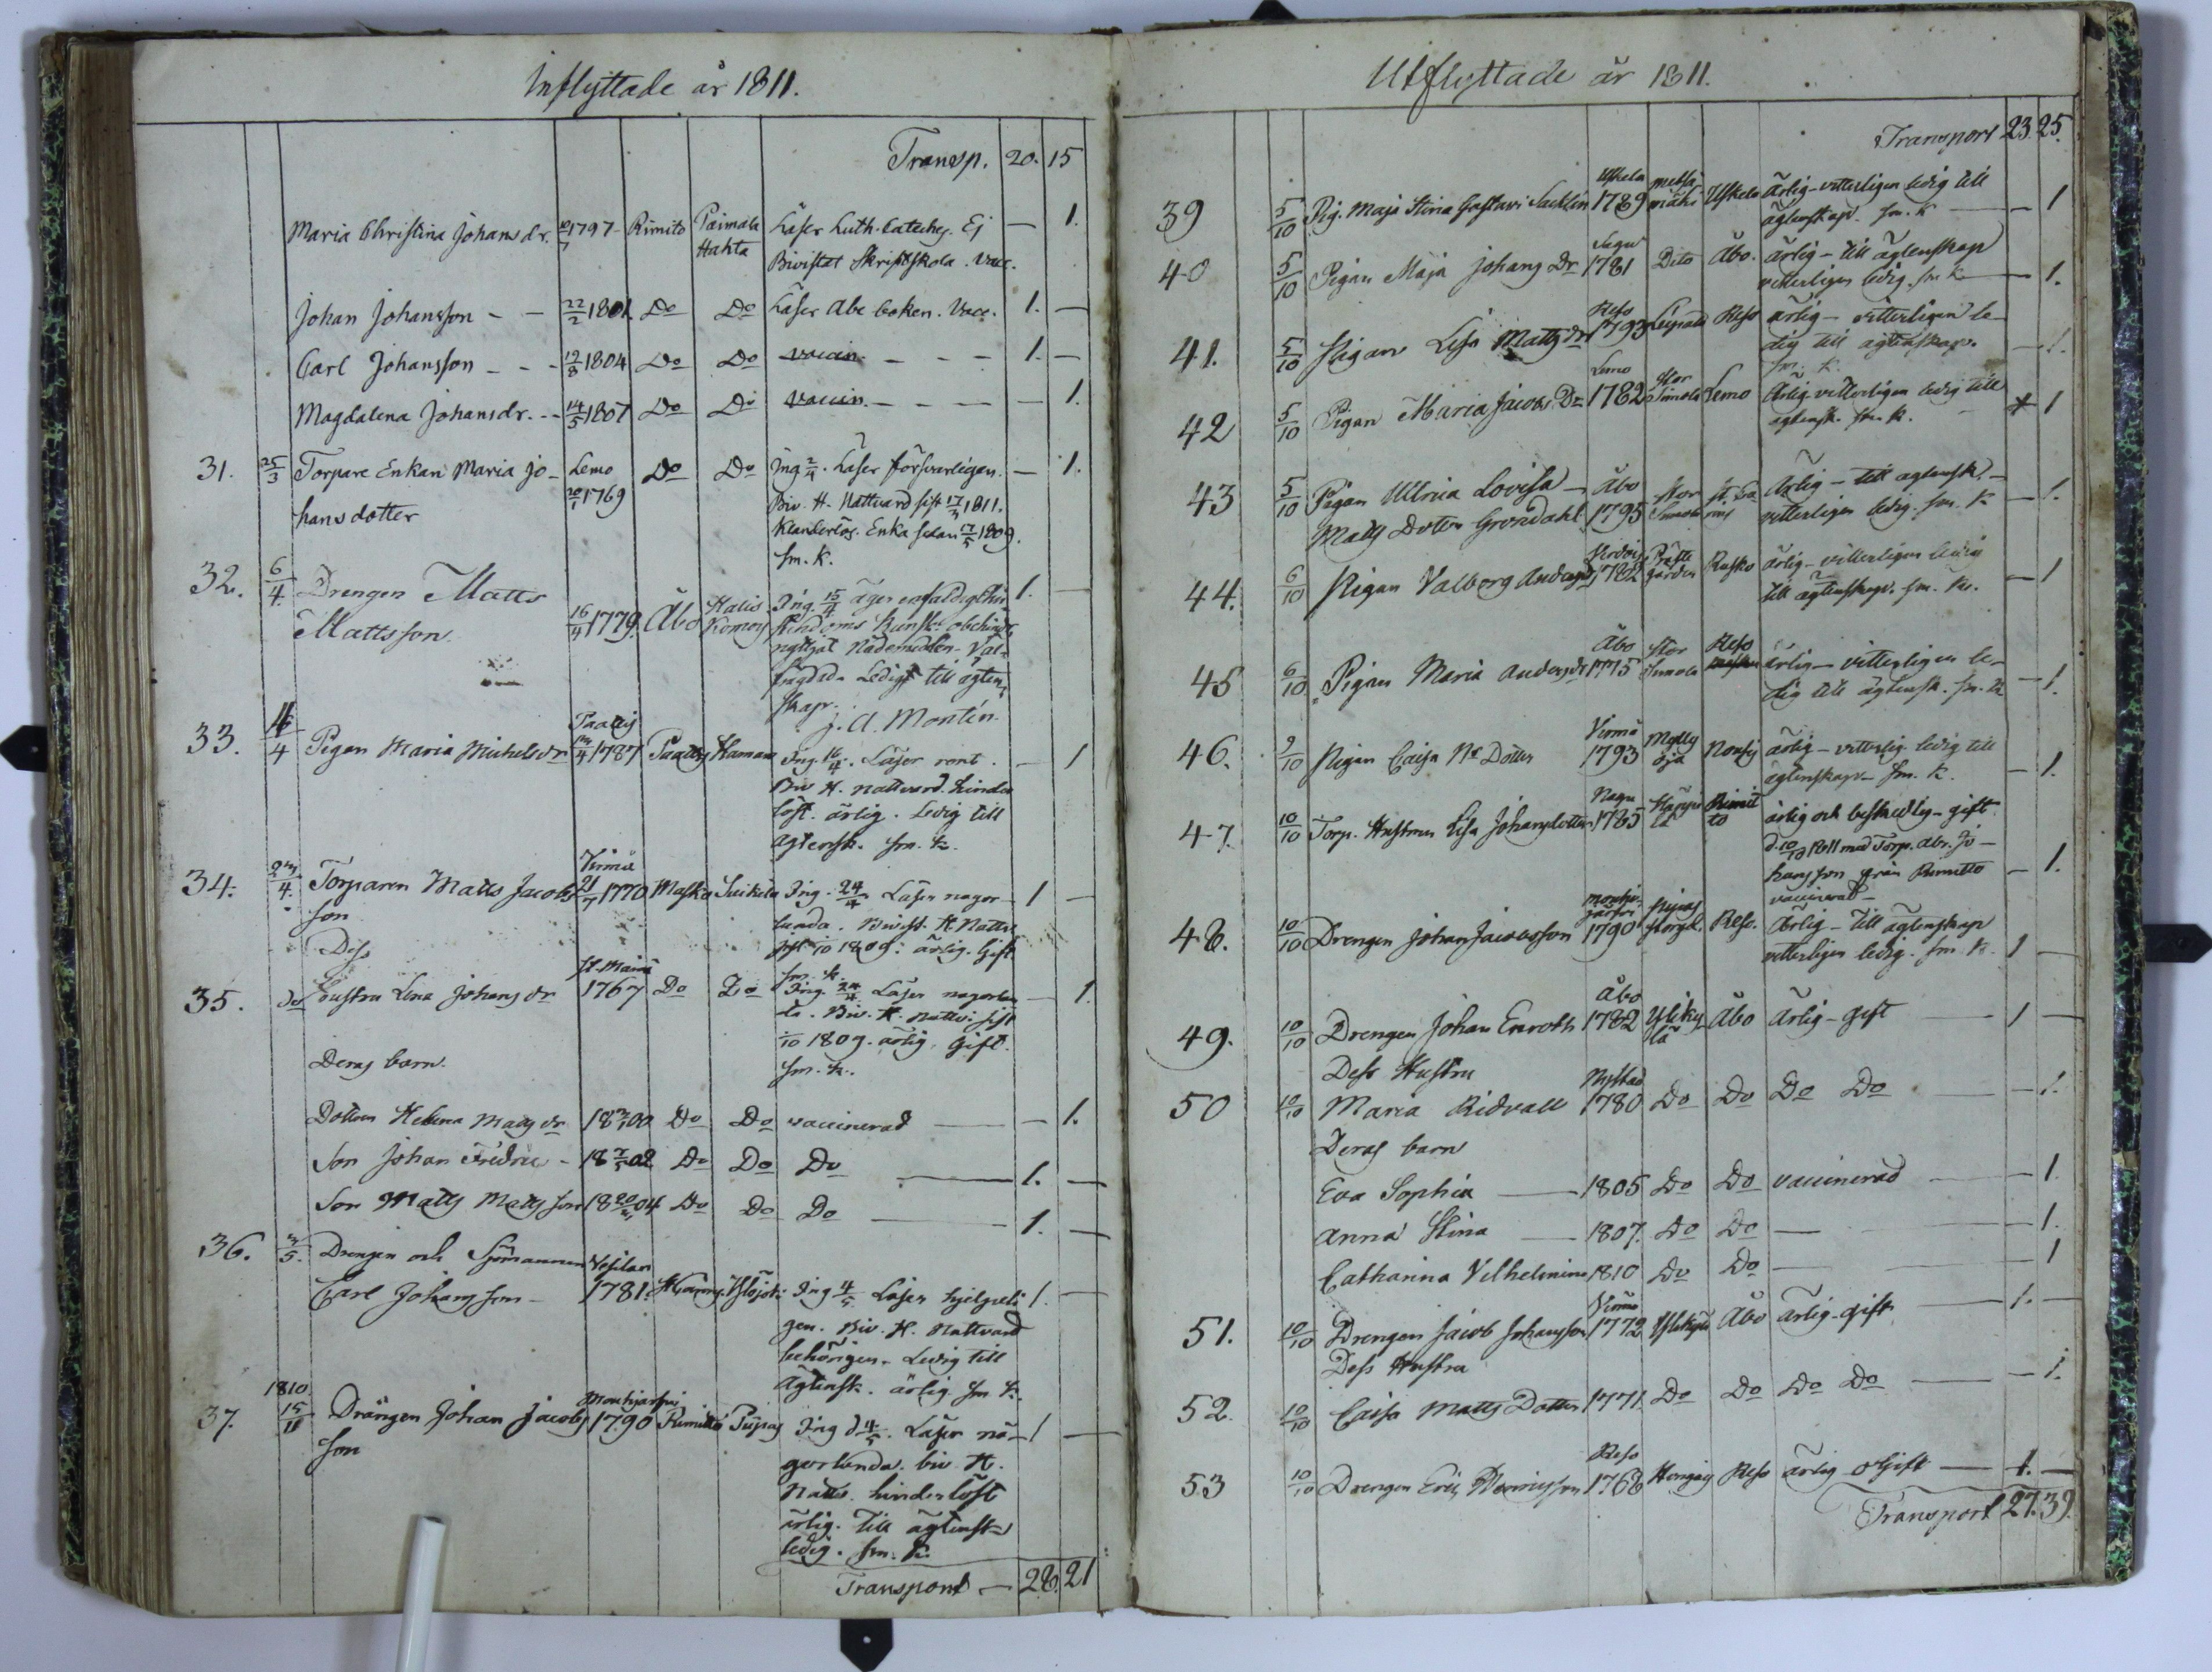 Inflyttade år 1811.
Transp. 20. 15
Maria Christina Johansdr. 1797 Rimito Paimala Läser Luth. Cateches. Ej — 1.
Hakta Bivistat Skriftskola. Vacc.
Johan Johansson - - 22/2 1801. Do Do Läser Abc boken. Vacc. 1. —
Carl Johansson - - - 19/8 1804 Do Do vaccin. - - - 1. —
Magdalena Johansdr. - - 14/5 1807 Do Do vaccin. - - - — 1.
31. 25/3 Torpare Enkan Maria Jo- Lemo Do Do Ing 2/4. Läser försvarligen. — 1.
hans dotter 1769 Biv. H. Nattvard sist 17/3 1811.
Klanderlös. Enka sedan 17/5 1809.
sm. k.
32. 6/4 Drengen Matts
Mattsson. 16/4 1779. Åbo Ing. 15/4 äger enfaldigt 1. —
nyttjat Nådemedlen - Väl-
frägdad - Ledig till ägten-
skap.
J. A. Montin.
33. 4 Pigan Maria Michelsdr Paattis 1787 Paattis Hamara Ing. 16/4. Läser rent. — 1
Biv H. nattvard. hinder
löst. ärlig. Ledig till
Ägtensk. sm. k.
34. 4. Torparen Matts Jacobs Virmo 21/7 1770 Masko Ing. 24/4 Läser någor- 1 —
son lunda. Bivist. H. Nattv.
sist /10 1809: ärlig. Gift
Dess sm. k.
35. do hustru Lena Johansdr 1767 Do Do Ing. 24/4 Läser någorlun — 1.
da. Biv. H. Nattv. sist
/10 1809. ärlig. Gift.
Deras barn. sm. k.
Dottren Helena Matts dr 1800 Do Do vaccinerad — — 1.
Son Johan Fredric - 18 7/5 02 Do Do Do — 1. —
Son Matts Mattsson 1804 Do Do Do — 1. —
36. 3/5. Drengen och Sjömannen
Carl Johansson - 1781. Ing 4/5 Läser hjelpeli 1. —
gen. Biv. H. Nattvard
behörigen. Ledig till
Ägtensk. ärlig. sm k.
1810.
37. 15/11 Drängen Johan Jacobs 1790 Rimitto Piipas Ing d 4/5. Läser nå- 1 —
son gorlunda. biv H.
Nattv. hinderlöst
ärlig. till ägtensk
ledig. sm. k.
Transport — 28. 21
Utflyttade år 1811.
Transport 23. 25.
39 5/10 Pig. Maja Stina Gustavi Uskela 1789 Uskela Ärlig - vitterligen ledig till
ägtenskap. sm. k — — 1
40 5/10 Pigan Maja Johans Dr Sagu 1781 Dito Åbo. ärlig - till ägtenskap
vitterligen ledig. sm k — — 1.
41. 5/10 Pigan Lisa Matts dr Reso 1793 Reso ärlig - vitterligen le-
dig till ägtenskap. — 1.
sm. k.
42 5/10 Pigan Maria Jacobs Dr Lemo 1782 Stor Lemo Ärlig vitterligen ledig till
ägtensk. sm. k. 1
43 5/10 Pigan Ulrica Lovisa — Åbo Stor Ärlig - till ägtensk. -
Matts Dotter Grondahl 1795 vitterligen ledig. sm. k — 1.
44. 6/10 Pigan Valborg Andersdr 1782 Präste gården Rusko ärlig - vitterligen ledig
till ägtenskap. sm. k. — 1
45 6/10 Pigan Maria Andersdr Åbo 1775 Stor Reso ärlig - vitterligen le-
dig till ägtensk. sm. k — 1.
46. 9/10 Pigan Caisa Ms Dotter Virmo 1793 Mylly oja Nousis ärlig - vitterlig. ledig till
ägtenskap - sm. k. — 1.
47. 10/10 Torp. Hustrun Lisa Johansdotter Nagu 1785 Rimit to ärlig och beskedlig - gift
d. 10/10 1811 med Torp. Abr. Jo-
hansson från Rimitto — 1.
vaccinerad -
48. 10/10 Drengen Johan Jacobsson 1790 Piipas Reso. Ärlig - till ägtenskap
vitterligen ledig. sm k. 1 —
49. 10/10 Drengen Johan Enroth Åbo 1782 Ylikylä Åbo Ärlig - gift — 1 —
Dess Hustru
50 10/10 Maria Ridvall Nystad 1780 Do Do Do Do — — 1.
Deras barn
Eva Sophia — 1805 Do Do vaccinerad — — 1.
Anna Stina — 1807. Do Do — — 1.
Catharina Vilhelmina 1810 Do Do — — 1
51. 10/10 Drengen Jacob Johansson Virmo 1772 Ylikylä Åbo ärlig - gift — 1. —
Dess Hustru
52. 10/10 Caisa Matts Dotter 1771. Do Do Do Do — — 1.
53 10/10 Drengen Eric Henricsson Reso 1768 Hongas Reso ärlig - o Gift — 1. —
Transport 27. 39.